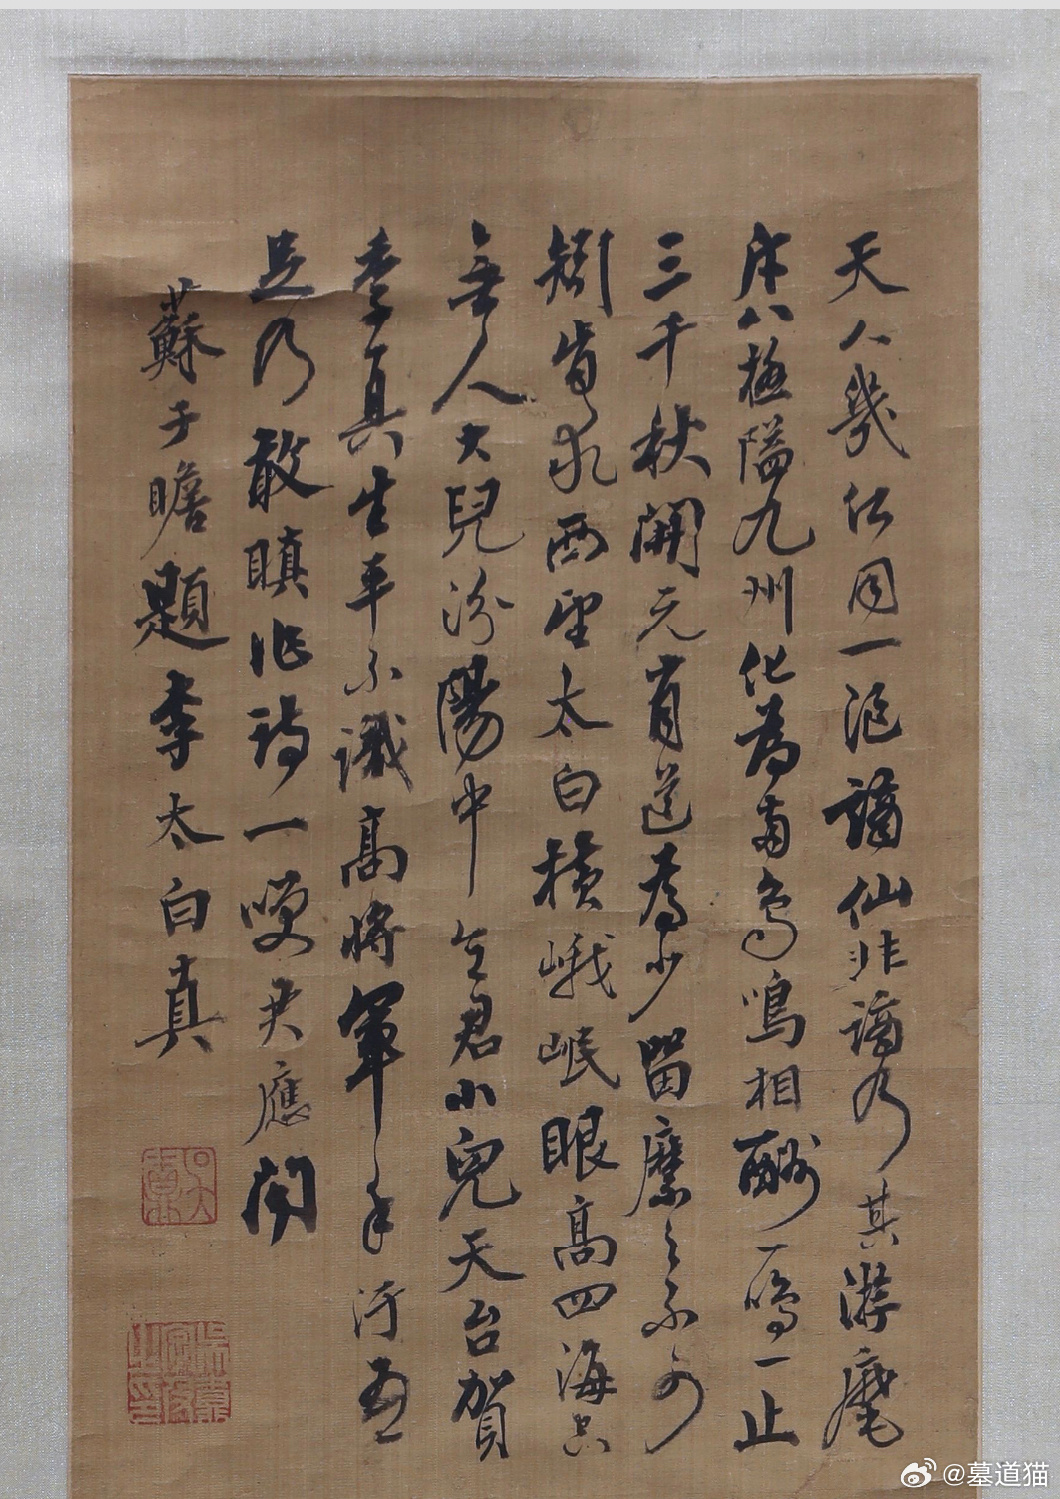 天人幾何同一漚謫仙非謫乃其游麾
斥八極隘九州化為兩鳥鳴相酬一鳴一止
三千秋開元有道為少留縻之不可
矧肯求西望太白橫峨岷眼高四海空
無人大兒汾陽中令君小兒天台賀
季真生平不識高將軍手汙吾
足乃敢瞋作詩一咲君應聞
蘇子瞻題李太白真
@墓道猫